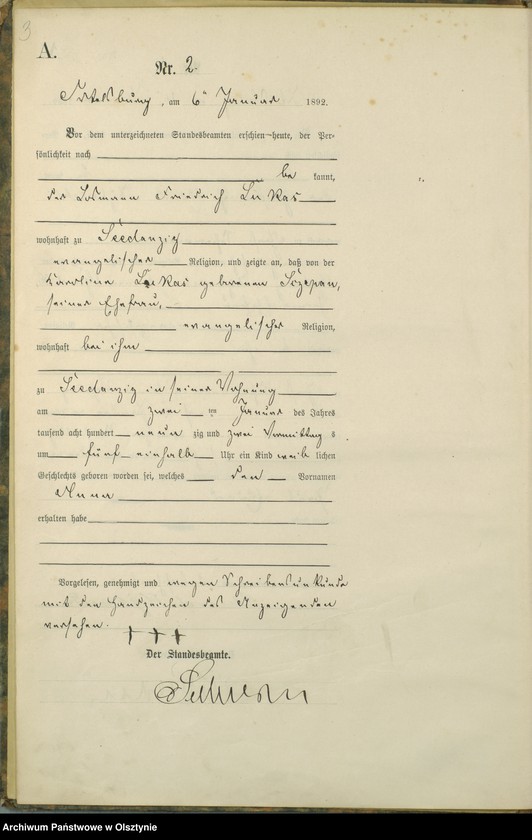 3
A.
Nr. 2.
Ortelsburg, am 6 ten Januar 1892.
Vor dem unterzeichneten Standesbeamten erschien heute, der Per-
sönlichkeit nach
be kannt,
der Losmann Friedrich Lukas
wohnhaft zu Seedanzig
evangelischer Religion, und zeigte an, daß von der
Karoline Lukas geborenen Sczepan,
seiner Ehefrau,
evangelischer Religion,
wohnhaft bei ihm
zu Seedanzig in seiner Wohnung
am zwei ten Januar des Jahres
tausend acht hundert neun zig und zwei Vormittag s
um fünf einhalb Uhr ein Kind weib lichen
Geschlechts geboren worden sei, welches den Vornamen
Anna
erhalten habe
Vorgelesen, genehmigt und wegen Schreibensunkunde
mit den Handzeichen des Anzeigenden
versehen.
+ + +
Der Standesbeamte.
Archiwum Państwowe w Olsztynie